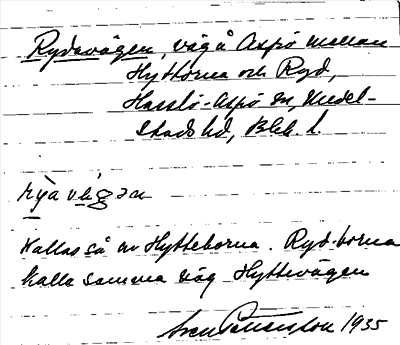 Rydavägen, väg å Aspö mellan
Hyttorna och Ryd,
Hasslö-Aspö sn, Medel-
stads hd, Blek. l.
rya vägən
Kallas så av Hytteborna. Ryd-borna
kalla samma väg Hyttevägen
Sven Petersson 1935